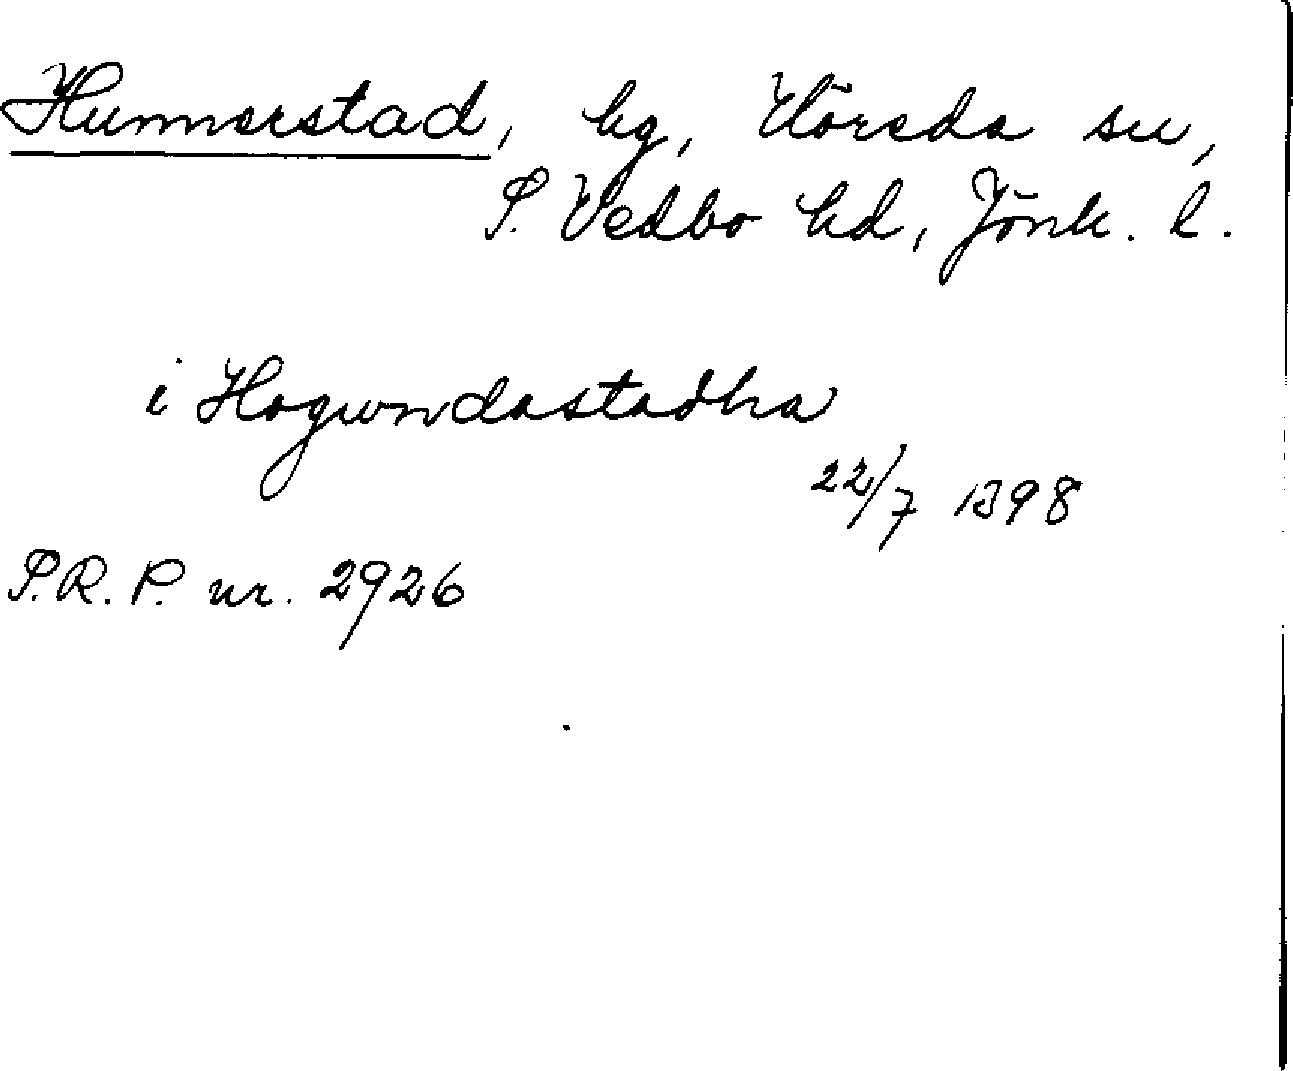 Hunnerstad, by, Höreda sn,
S. Vedbo hd, Jönk. l.
i Hogwndastadha
22/7 1398
S.R.P. nr. 2926